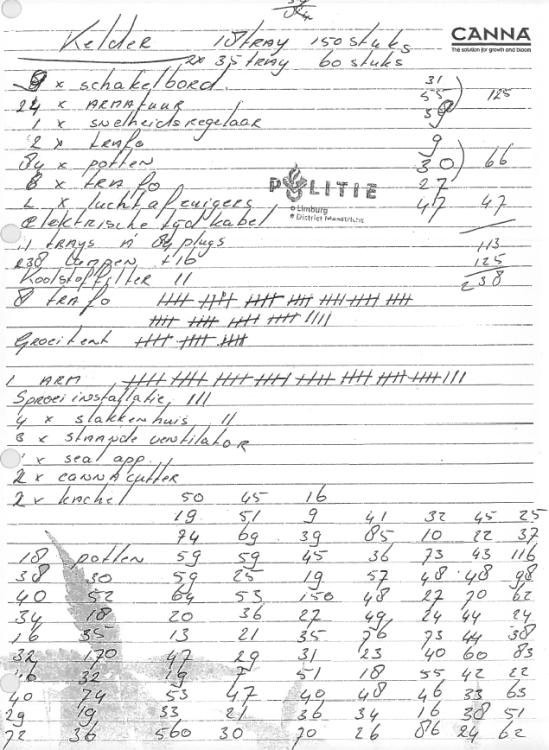 CANNA
The solution for growth and bloom
Kelder 18 tray 150 stuks
2x 35 tray 60 stuks
9 x schakelbord 31
24 x ARMATUUR 55 125
1 x snelheidsregelaar 39
2 x trafo 9
84 x potten 30 66
8 x trafo 27
POLITIE
Limburg
District Maastricht
2 x luchtafzuigers 47 47
elektrische tyd kabel
11 trays n 84 plugs 113
238 lampen +16 125
Koolstoffilter 11 238
8 trafo
Groeitent
1 ARM
Sproei installatie III
4 x slakkenhuis II
3 x staande ventilator
1 x seal app.
2 x CANNA cutter
2 x kachel 50 45 16
19 51 9 41 32 45 25
74 69 39 85 10 22 37
18 potten 59 59 45 36 73 43 116
38 30 59 25 19 57 48 48 98
40 52 64 53 150 48 27 70 62
34 18 20 36 27 49 24 44 24
16 35 13 21 35 76 73 44 38
32 170 47 29 31 23 40 60 83
32 19 7 51 18 55 42 22
40 74 53 47 40 48 46 33 63
29 19 33 21 36 34 16 38 51
72 36 560 30 70 26 86 24 62